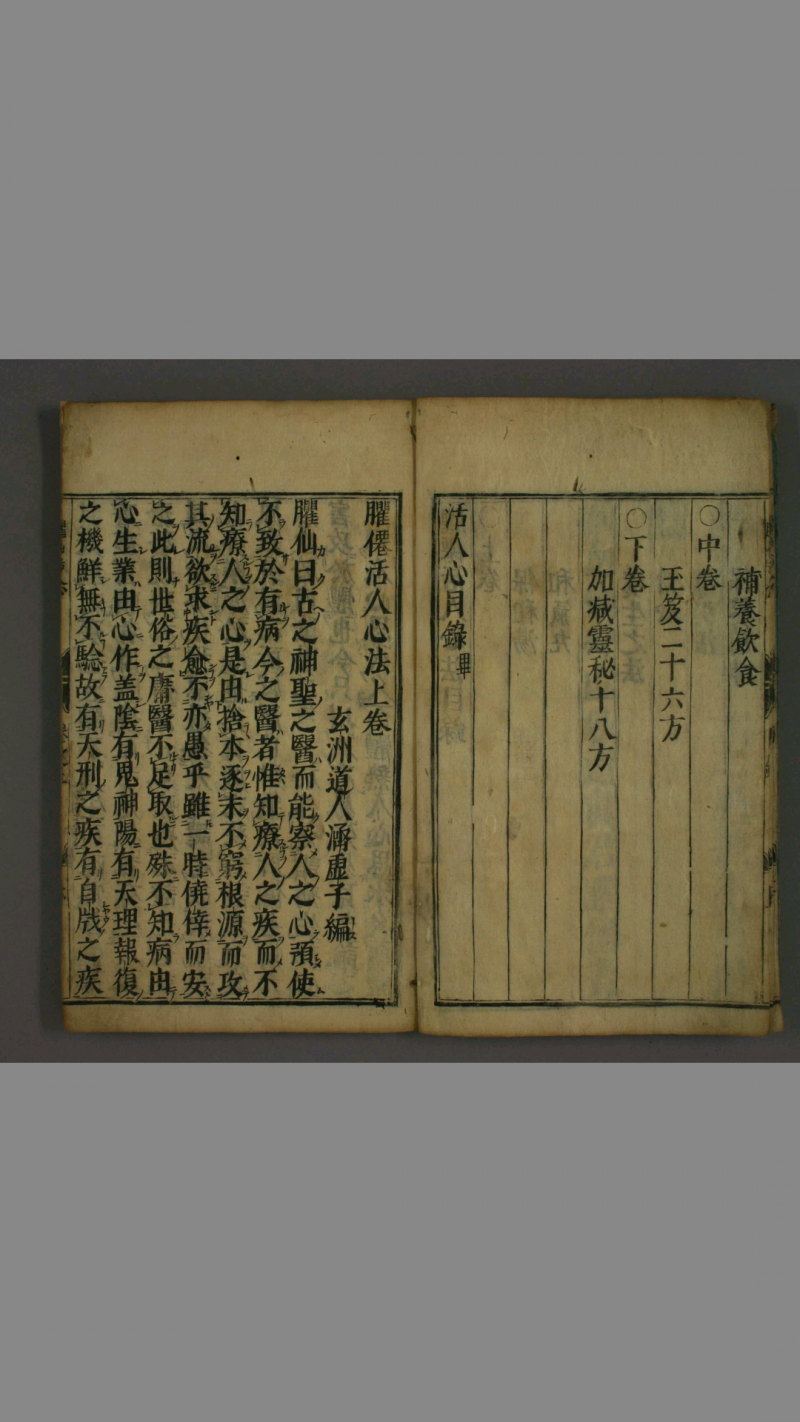 補養飲食
○中卷
王笈二十六方
○下卷
加减靈秘十八方
活人心目錄畢
臞僊活人心法上卷
玄洲道人涵虛子編
臞仙曰古之神聖之醫而能察人之心預使
不致於有病今之醫者惟知療人之疾而不
知療人之心是由捨本逐末不窮根源而攻
其流欲求疾愈不亦愚乎雖一時僥倖而安
之此則世俗之庸醫不足取也殊不知病由
心生業由心作盖陰有鬼神陽有天理報復
之機鮮無不驗故有天刑之疾有自戕之疾